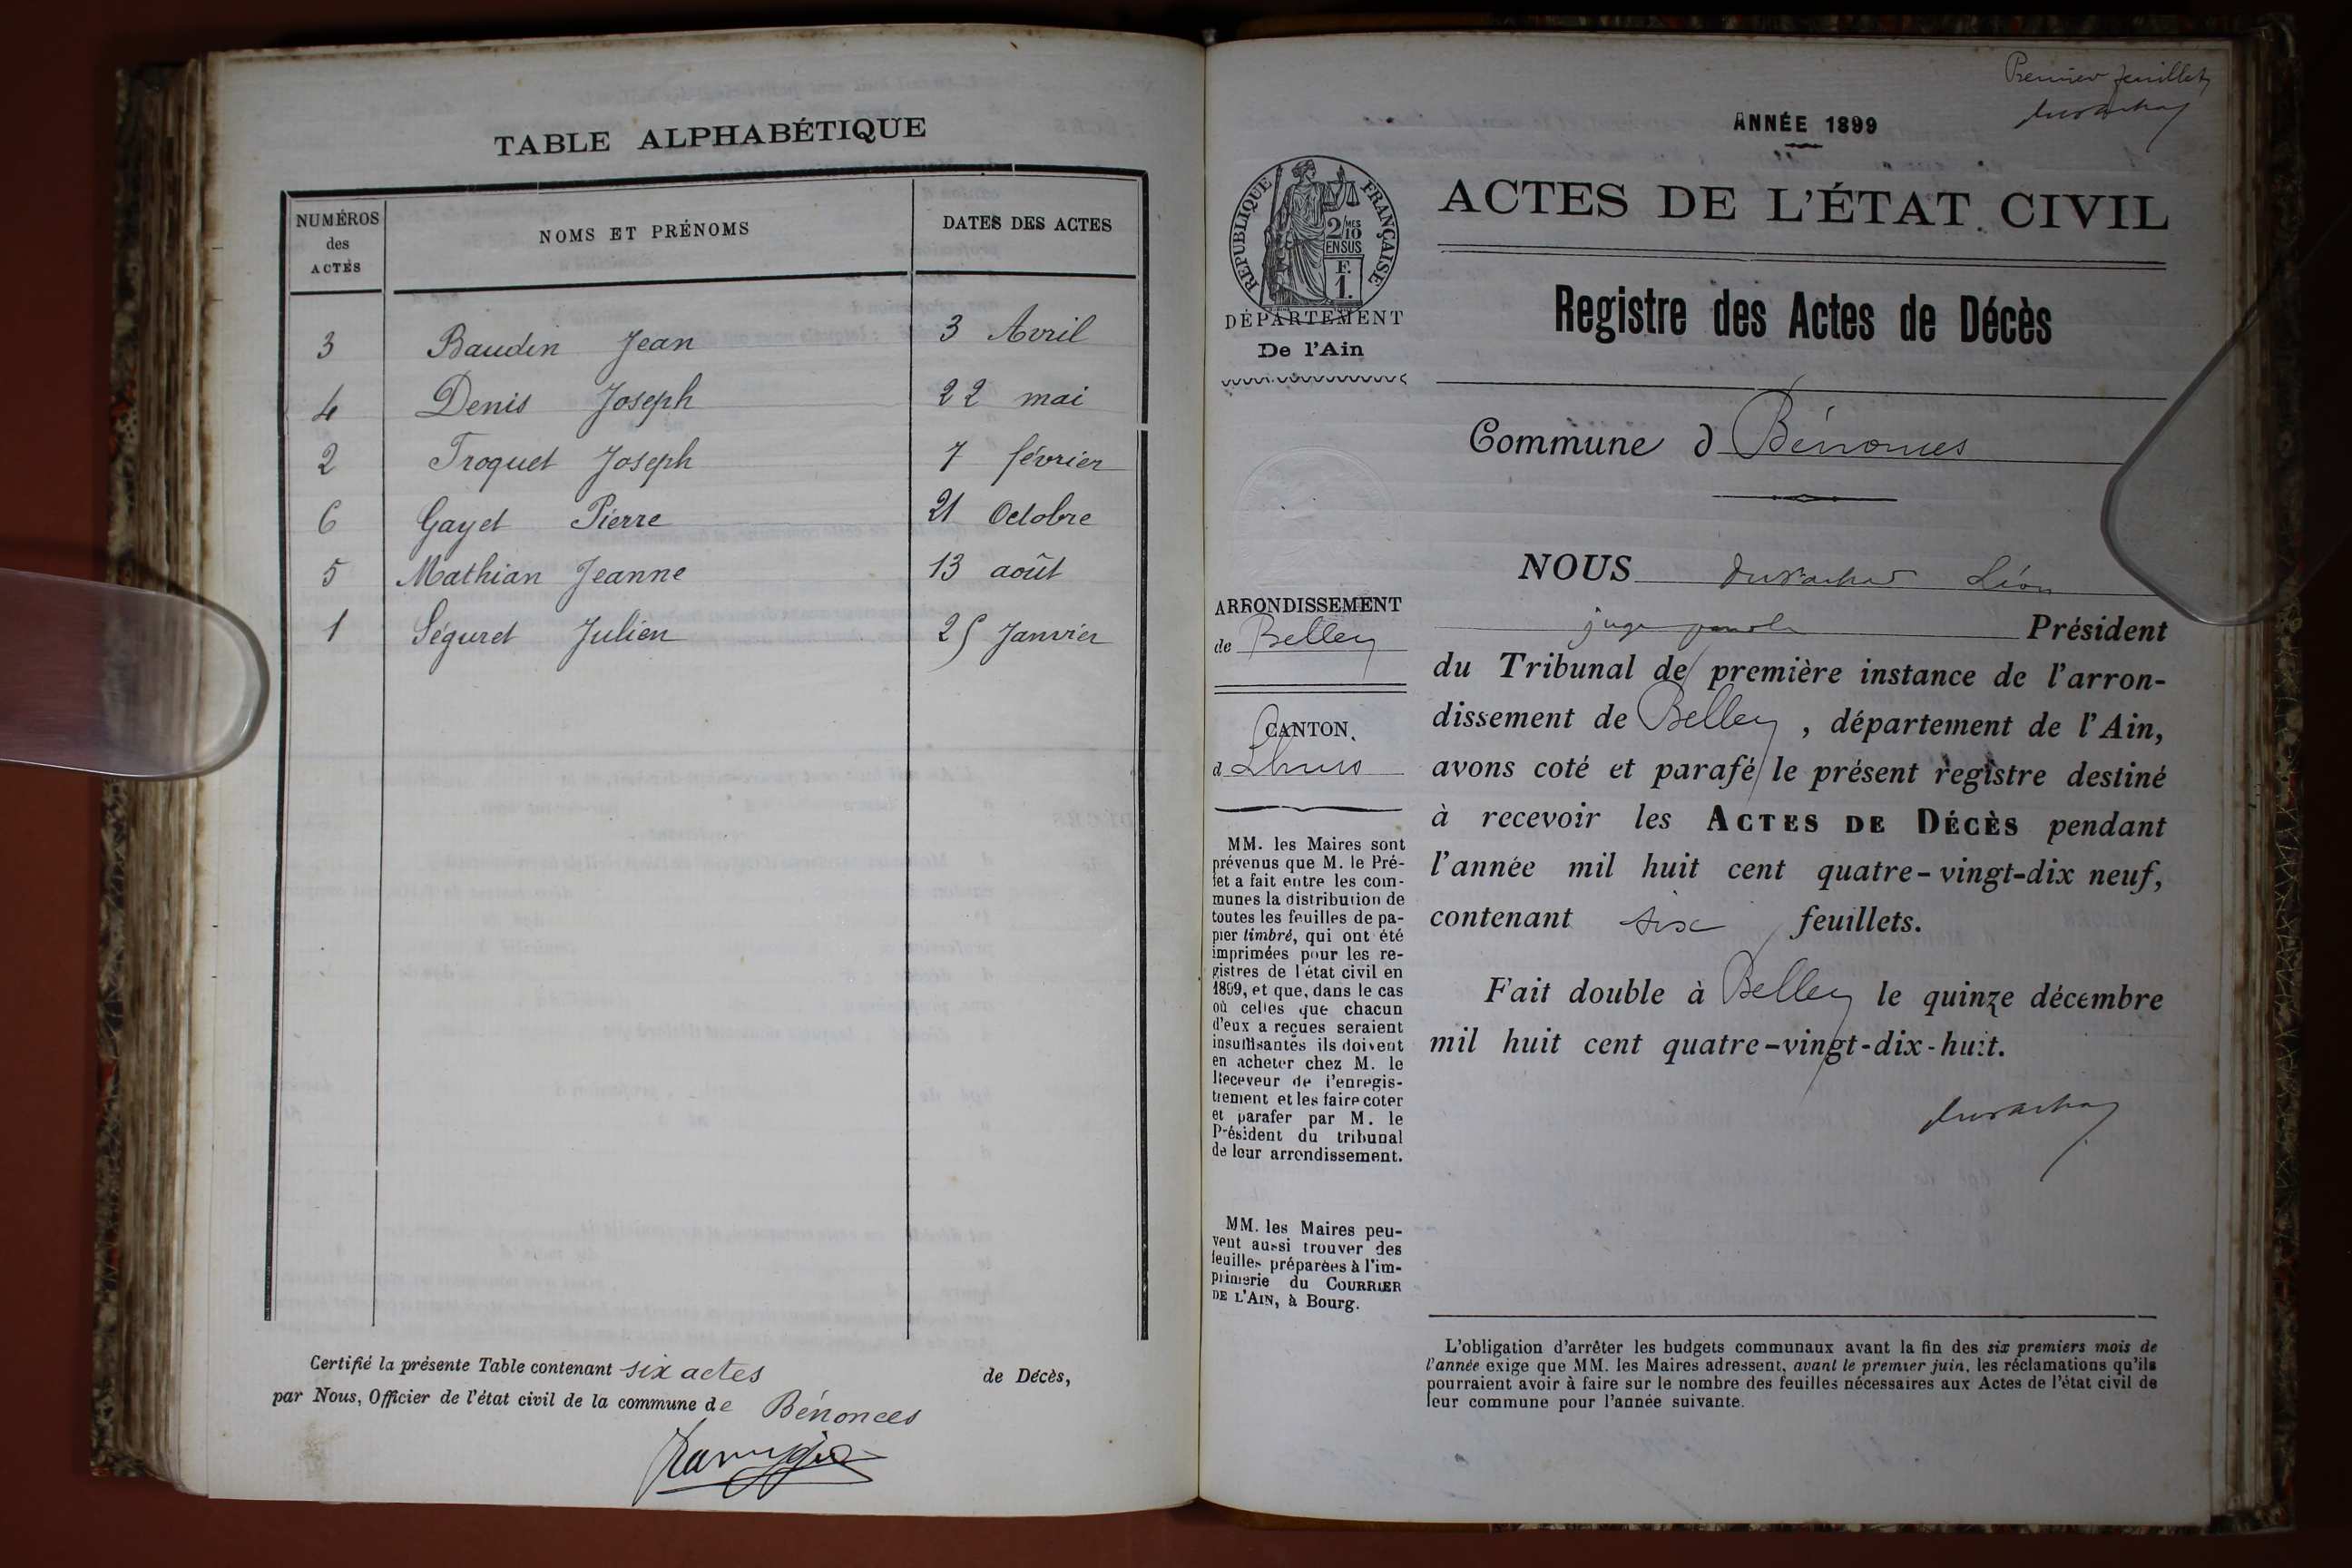 TABLE ALPHABÉTIQUE
NUMÉROS des ACTES
NOMS ET PRÉNOMS
DATES DES ACTES
3 Baudin Jean 3 Avril
4 Denis Joseph 22 mai
2 Troquet Joseph 7 février
6 Gayet Pierre 21 Octobre
5 Mathian Jeanne 13 août
1 Séguret Julien 25 Janvier
Certifié la présente Table contenant six actes de Décès,
par Nous, Officier de l'état civil de la commune de Bénonces
Premier feuillet
ANNÉE 1899
RÉPUBLIQUE FRANÇAISE
2/10 MES
EN SUS
F.
1.
DÉPARTEMENT
De l'Ain
ARRONDISSEMENT
de Belley
CANTON
d Lhuis
MM. les Maires sont
prévenus que M. le Pré-
fet a fait entre les com-
munes la distribution de
toutes les feuilles de pa-
pier timbré, qui ont été
imprimées pour les re-
gistres de l'état civil en
1899, et que, dans le cas
où celles que chacun
d'eux a reçues seraient
insuffisantes ils doivent
en acheter chez M. le
Receveur de l'enregis-
trement et les faire coter
et parafer par M. le
Président du tribunal
de leur arrondissement.
MM. les Maires peu-
vent aussi trouver des
feuilles préparées à l'im-
primerie du COURRIER
DE L'AIN, à Bourg.
ACTES DE L'ÉTAT CIVIL
Registre des Actes de Décès
Commune d Bénonces
NOUS Léon
juge Président
du Tribunal de première instance de l'arron-
dissement de Belley, département de l'Ain,
avons coté et parafé le présent registre destiné
à recevoir les ACTES DE DÉCÈS pendant
l'année mil huit cent quatre-vingt-dix neuf,
contenant six feuillets.
Fait double à Belley le quinze décembre
mil huit cent quatre-vingt-dix-huit.
L'obligation d'arrêter les budgets communaux avant la fin des six premiers mois de
l'année exige que MM. les Maires adressent, avant le premier juin, les réclamations qu'ils
pourraient avoir à faire sur le nombre des feuilles nécessaires aux Actes de l'état civil de
leur commune pour l'année suivante.